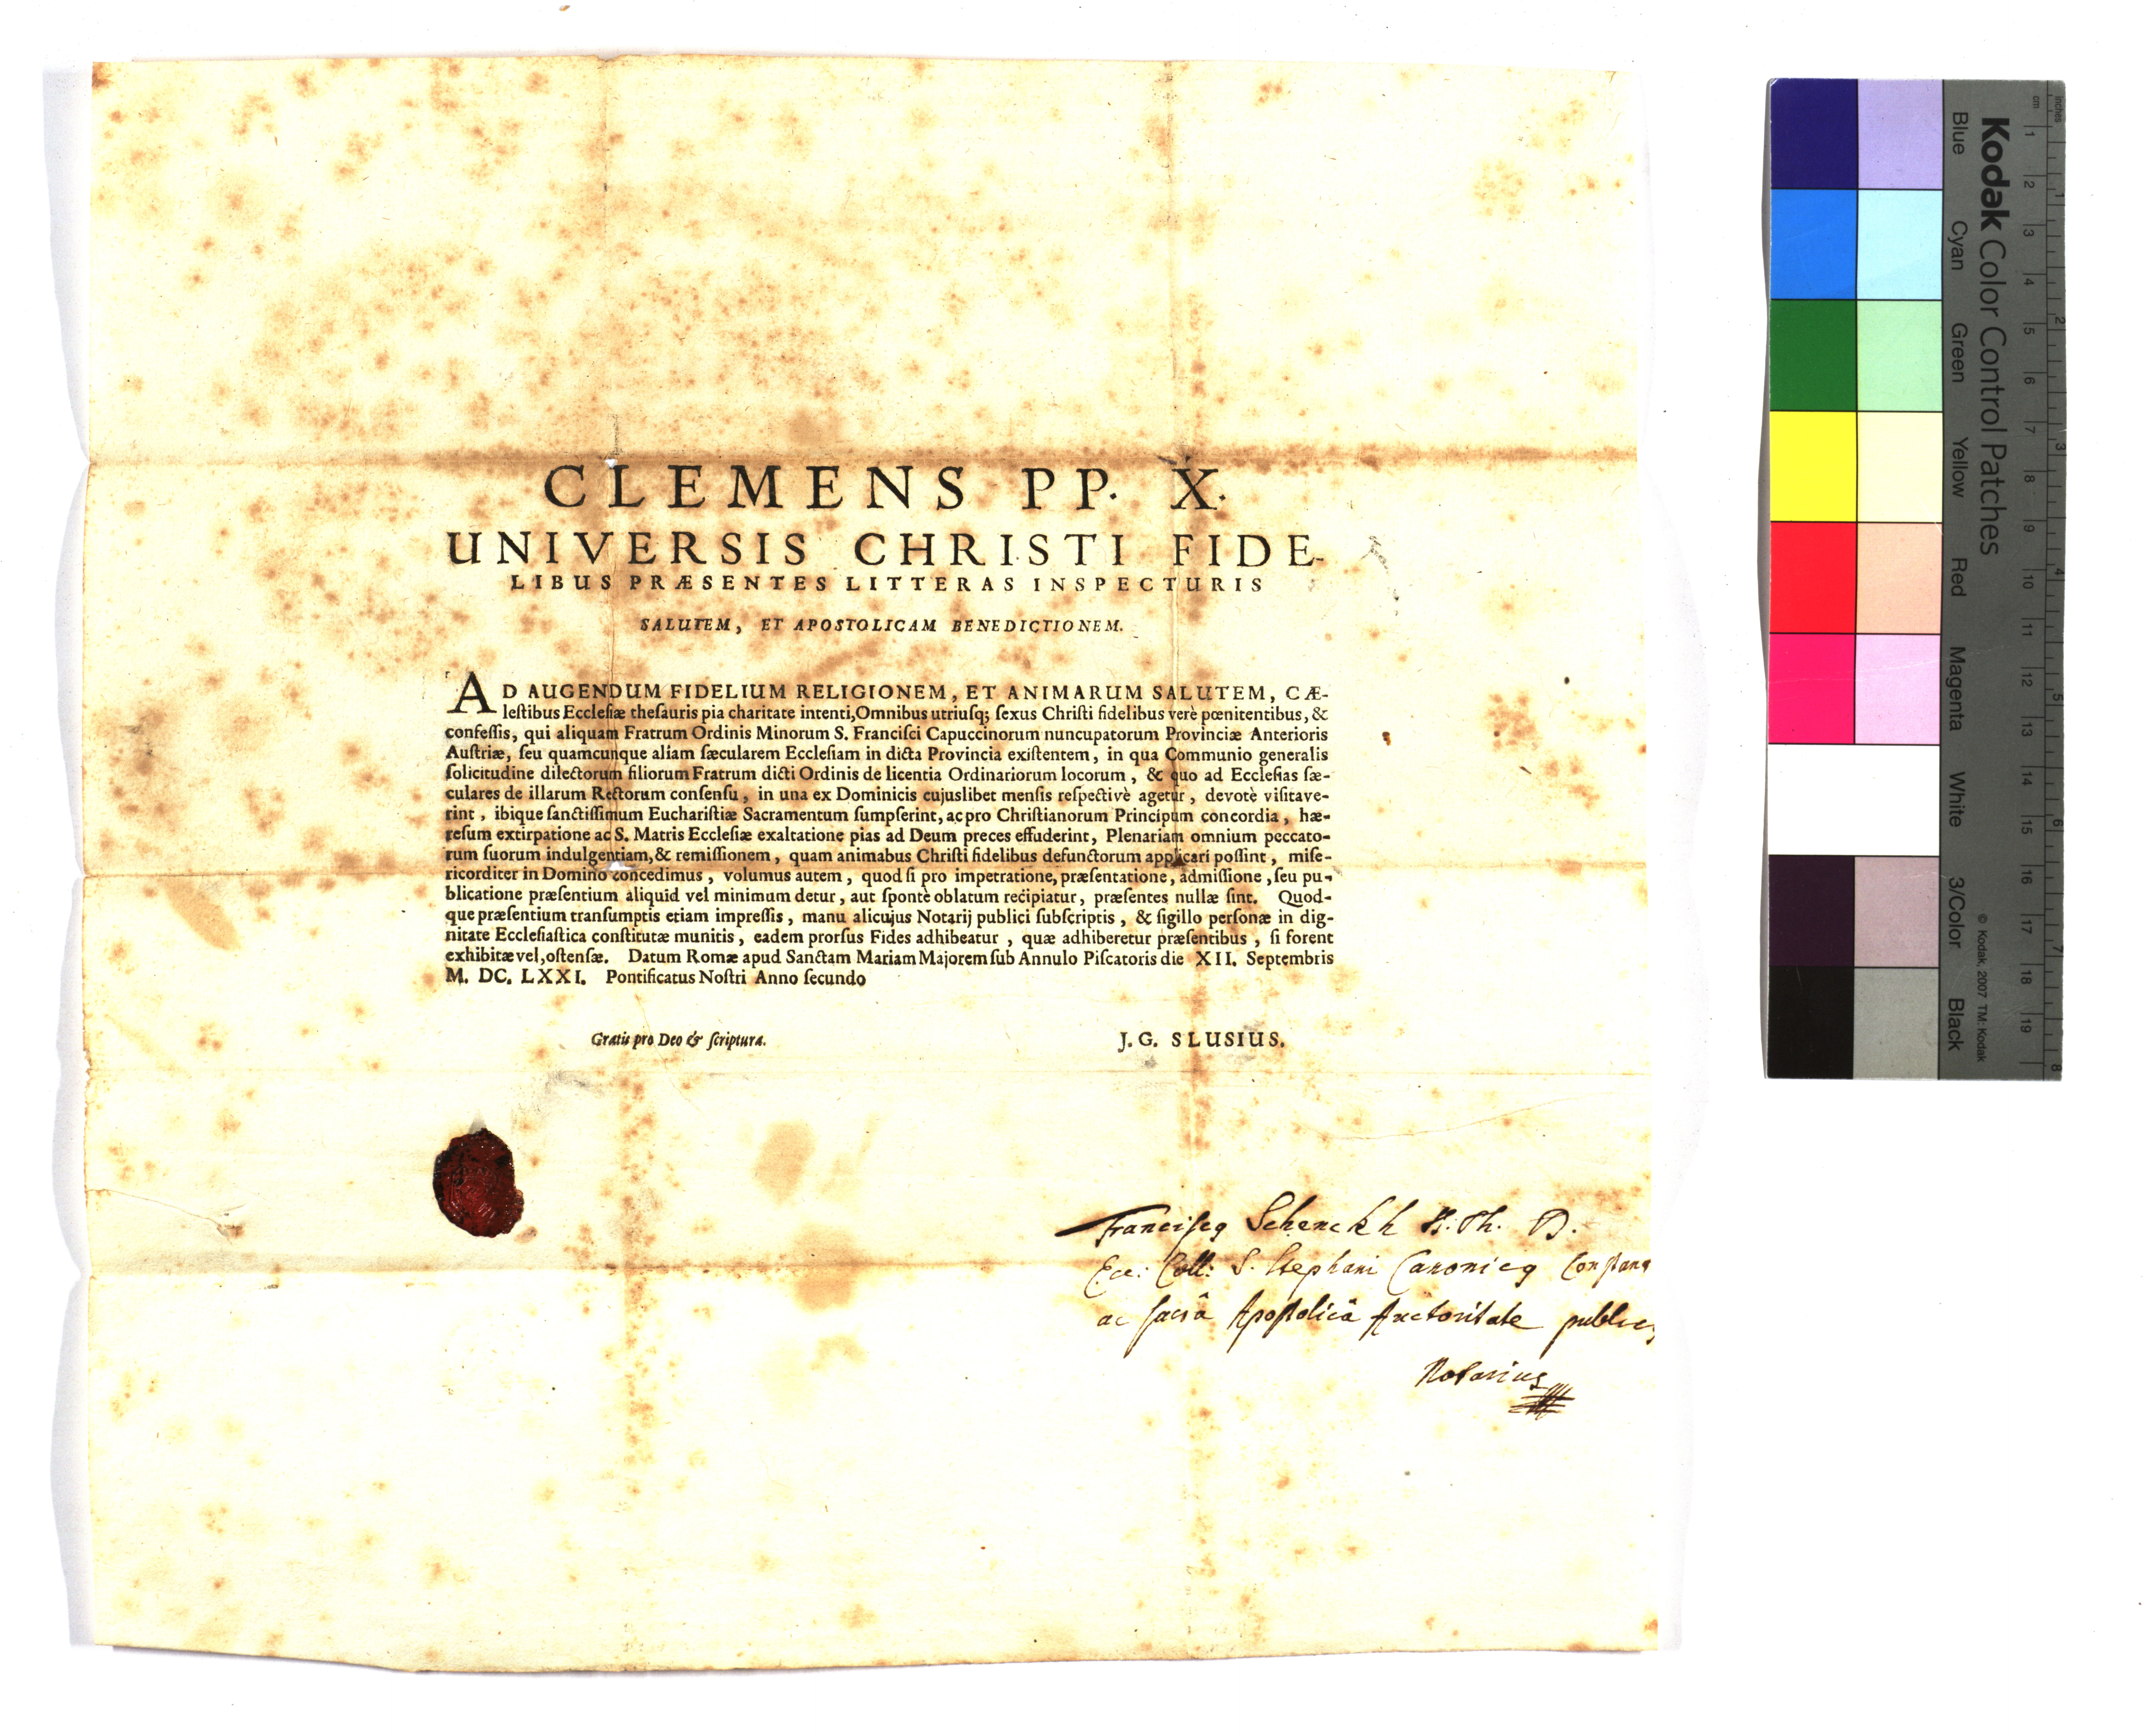 CLEMENS PP. X.
UNIVERSIS CHRISTI FIDE-
LIBUS PRÆSENTES LITTERAS INSPECTURIS
SALUTEM, ET APOSTOLICAM BENEDICTIONEM.
AD AUGENDUM FIDELIUM RELIGIONEM, ET ANIMARUM SALUTEM, CÆ-
leſtibus Eccleſiæ theſauris pia charitate intenti, Omnibus utriuſq; ſexus Chriſti fidelibus verè pœnitentibus, &
confeſſis, qui aliquam Fratrum Ordinis Minorum S. Franciſci Capuccinorum nuncupatorum Provinciæ Anterioris
Auſtriæ, ſeu quamcunque aliam ſæcularem Eccleſiam in dicta Provincia exiſtentem, in qua Communio generalis
ſolicitudine dilectorum filiorum Fratrum dicti Ordinis de licentia Ordinariorum locorum, & quo ad Eccleſias ſæ-
culares de illarum Rectorum conſenſu, in una ex Dominicis cujuslibet menſis reſpectivè agetur, devotè viſitave-
rint, ibique ſanctiſſimum Euchariſtiæ Sacramentum ſumpſerint, ac pro Chriſtianorum Principum concordia, hæ-
reſum extirpatione ac S. Matris Eccleſiæ exaltatione pias ad Deum preces effuderint, Plenariam omnium peccato-
rum ſuorum indulgentiam, & remiſſionem, quam animabus Chriſti fidelibus defunctorum applicari poſſint, miſe-
ricorditer in Domino concedimus, volumus autem, quod ſi pro impetratione, præſentatione, admiſſione, ſeu pu-
blicatione præſentium aliquid vel minimum detur, aut ſpontè oblatum recipiatur, præſentes nullæ ſint. Quod-
que præſentium tranſumptis etiam impreſſis, manu alicujus Notarij publici ſubſcriptis, & ſigillo perſonæ in dig-
nitate Eccleſiaſtica conſtitutæ munitis, eadem prorſus Fides adhibeatur, quæ adhiberetur præſentibus, ſi forent
exhibitæ vel, oſtenſæ. Datum Romæ apud Sanctam Mariam Majorem ſub Annulo Piſcatoris die XII. Septembris
M. DC. LXXI. Pontificatus Noſtri Anno ſecundo
Gratis pro Deo & ſcriptura.
J. G. SLUSIUS.
Franciſcq Schenckh Th. D.
Ecc: Coll: S. Stephani Canonicq Conſtant
ac ſacrâ Apoſtolicâ Auctoritate public9
Notarius
Kodak Color Control Patches
Blue Cyan Green Yellow Red Magenta White 3/Color Black
© Kodak, 2007 TM: Kodak
cm 1 2 3 4 5 6 7 8 9 10 11 12 13 14 15 16 17 18 19
Inches 1 2 3 4 5 6 7 8